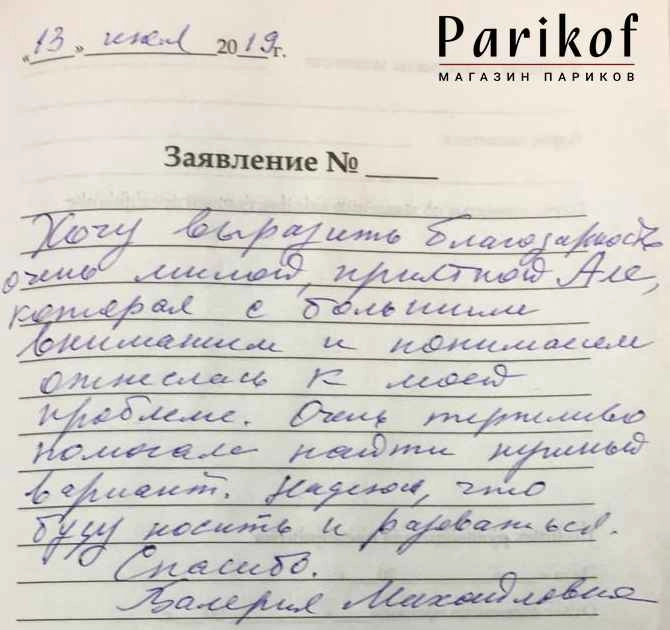 Parikof
МАГАЗИН ПАРИКОВ
«13» июля 2019 г.
Заявление № ____
Хочу выразить благодарность
очень милой, приятной Але,
которая с большим
вниманием и пониманием
отнеслась к моей
проблеме. Очень терпеливо
помогала найти нужный
вариант. Надеюсь, что
буду носить и радоваться.
Спасибо.
Валерия Михайловна